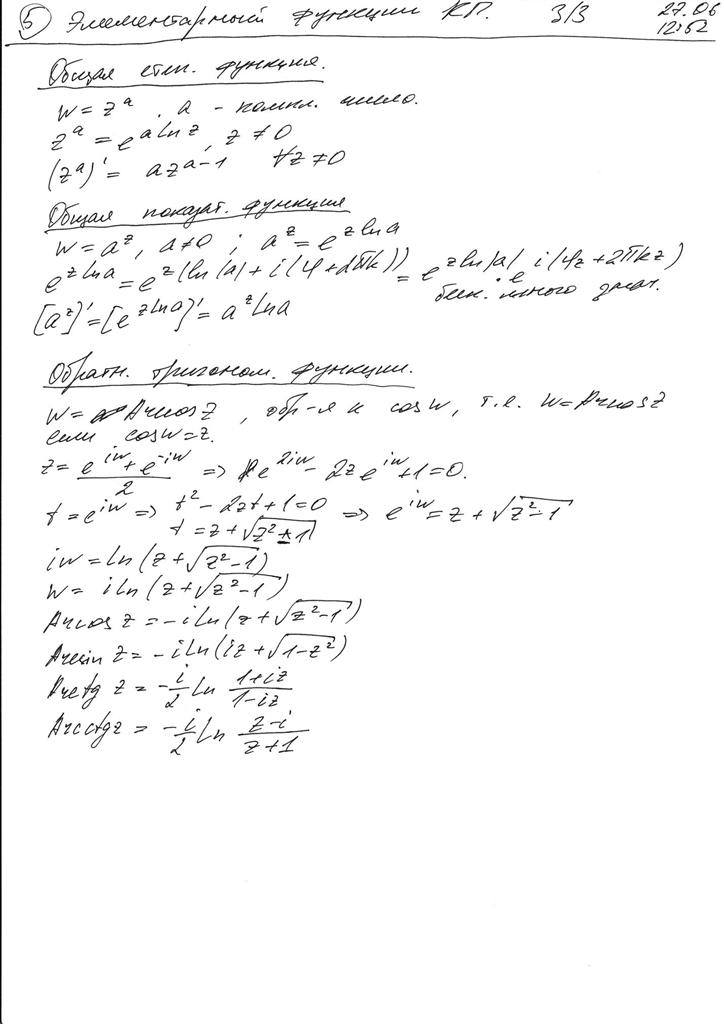 5 Элементарный функции КП. 3/3 27.06
12:52
Общая степ. функция.
w = z^a, a - компл. число.
z^a = e^{a ln z}, z ≠ 0
(z^a)' = a z^{a-1} ∀z ≠ 0
Общая показат. функция
w = a^z, a ≠ 0 ; a^z = e^{z ln a}
e^{z ln a} = e^{z(ln|a| + i(φ + 2πk))} = e^{z ln|a|} · e^{i(φz + 2πkz)}
беск. много знач.
[a^z]' = [e^{z ln a}]' = a^z ln a
Обратн. тригоном. функции.
w = Arccos z, обр-я к cos w, т.е. w = Arccos z
если cos w = z.
z = (e^{iw} + e^{-iw})/2 => e^{2iw} - 2z e^{iw} + 1 = 0.
t = e^{iw} => t² - 2zt + 1 = 0 => e^{iw} = z + √(z² - 1)
t = z + √(z² - 1)
iw = ln(z + √(z² - 1))
w = i ln(z + √(z² - 1))
Arccos z = -i ln(z + √(z² - 1))
Arcsin z = -i ln(iz + √(1 - z²))
Arctg z = -i/2 ln (1+iz)/(1-iz)
Arcctg z = -i/2 ln (z-i)/(z+1)